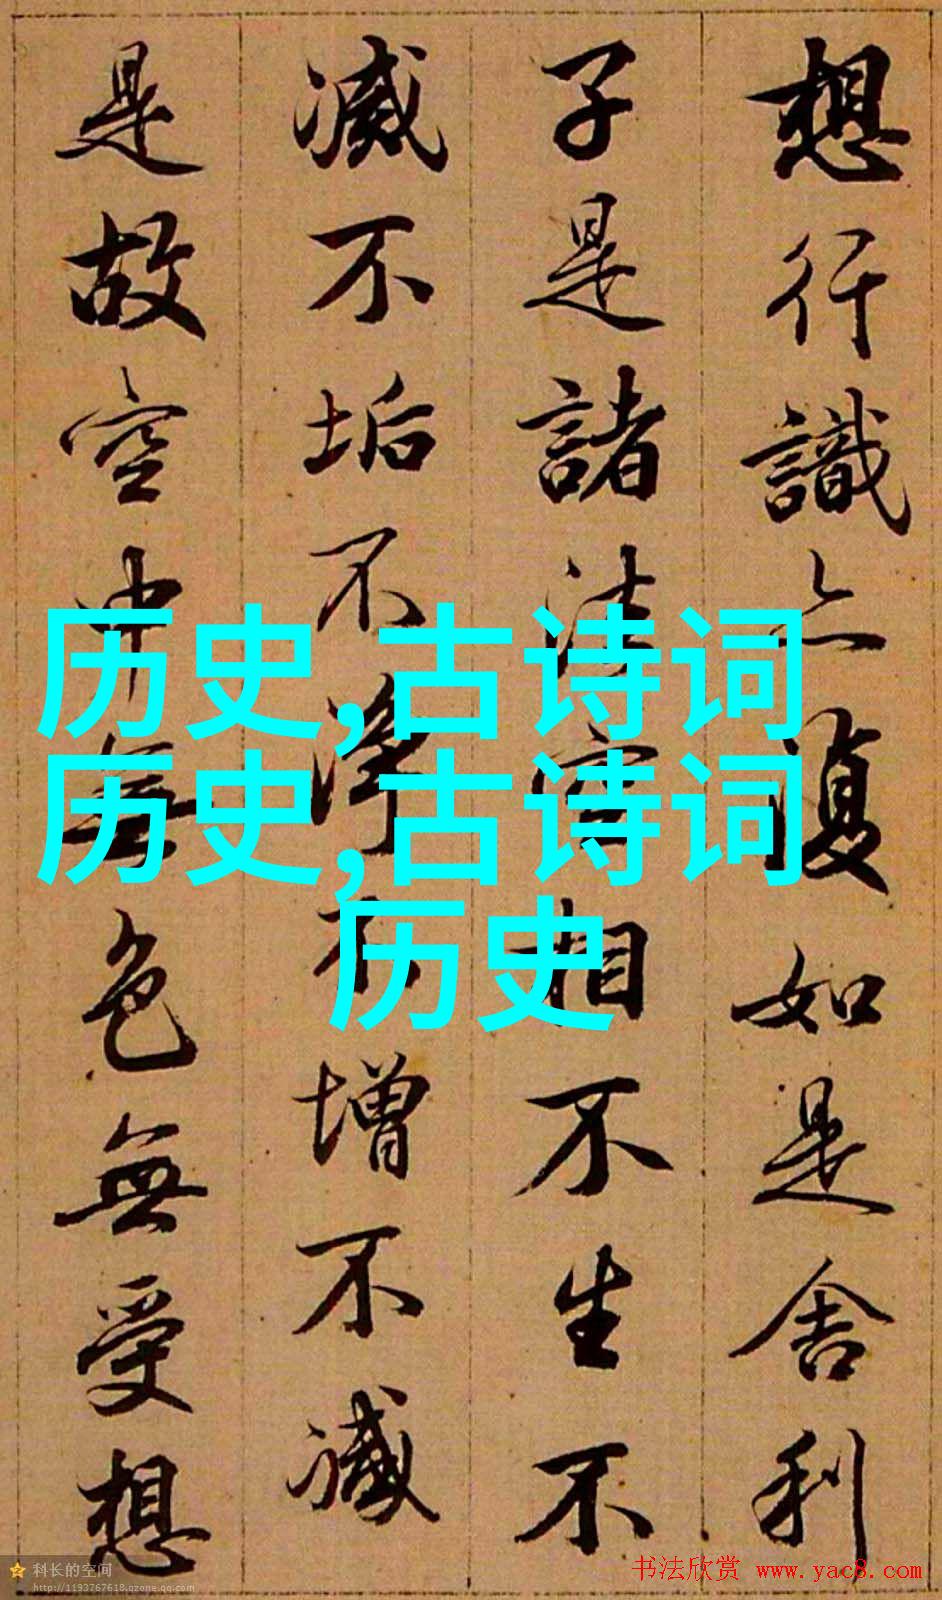 想行識亦復如是舍利
子是諸法空相不生不
滅不垢不淨不增不減
是故空中無色無受想
历史,古诗词
历史,古诗词
历史
科长的空间
http://1193767618.qzone.qq.com
书法欣赏 www.yac8.com